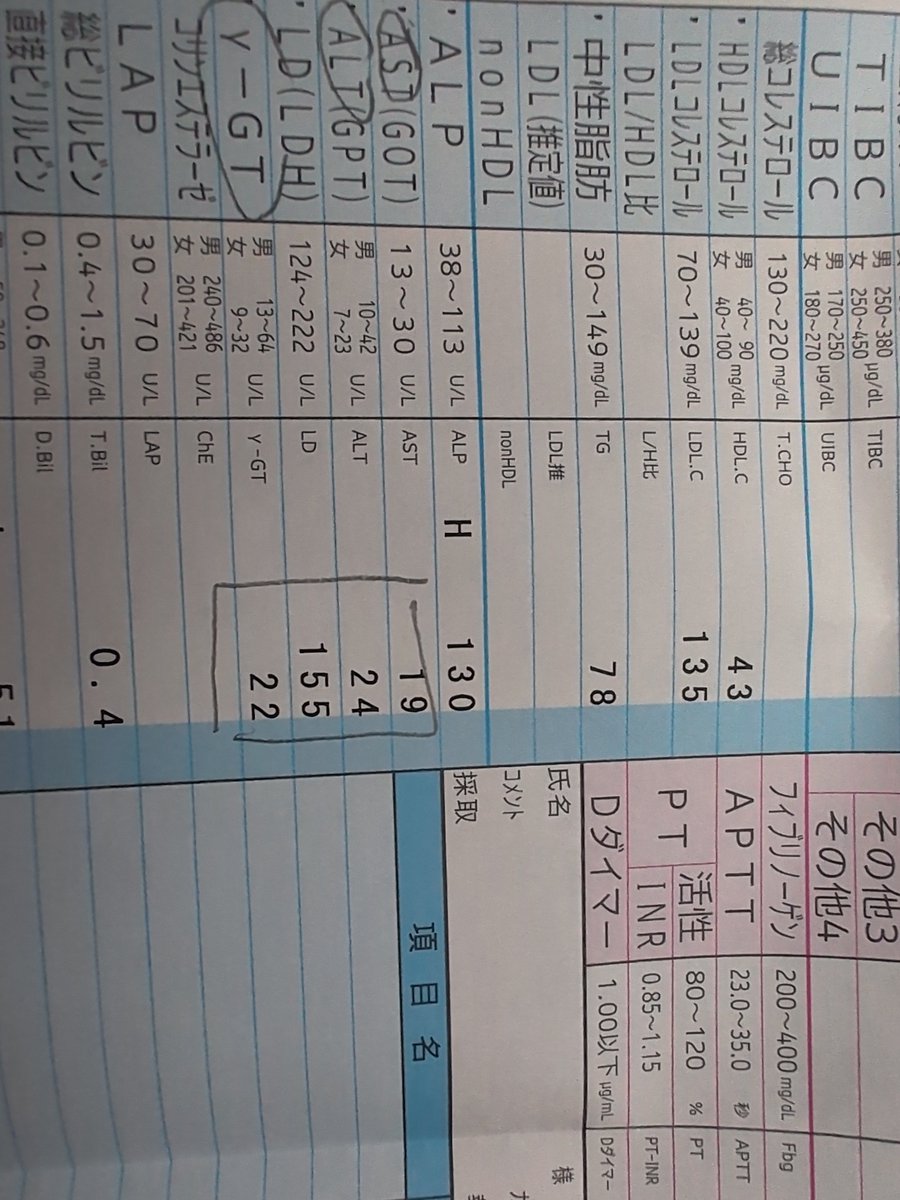 TIBC 男 250～380 女 250～450 μg/dL TIBC
UIBC 男 170～250 女 180～270 μg/dL UIBC
総コレステロール 130～220 mg/dL T.CHO
・HDLコレステロール 男 40～90 女 40～100 mg/dL HDL.C 43
・LDLコレステロール 70～139 mg/dL LDL.C 135
LDL/HDL比 L/H比
・中性脂肪 30～149 mg/dL TG 78
LDL(推定値) LDL推
nonHDL nonHDL
・ALP 38～113 U/L ALP H 130
・AST(GOT) 13～30 U/L AST 19
・ALT(GPT) 男 10～42 女 7～23 U/L ALT 24
・LD(LDH) 124～222 U/L LD 155
・γ-GT 男 13～64 女 9～32 U/L γ-GT 22
コリンエステラーゼ 男 240～486 女 201～421 U/L ChE
LAP 30～70 U/L LAP
総ビリルビン 0.4～1.5 mg/dL T.Bil 0.4
直接ビリルビン 0.1～0.6 mg/dL D.Bil
51
その他3
その他4
フィブリノーゲン 200～400 mg/dL Fbg
APTT 23.0～35.0 秒 APTT
PT 活性 80～120 % PT
INR 0.85～1.15 PT-INR
Dダイマー 1.00以下 μg/mL Dダイマー
氏名 様
コメント
採取
項目名